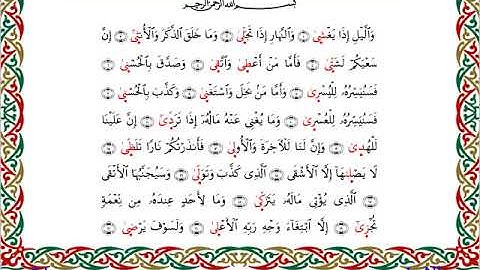 بِسْمِ ٱللَّهِ ٱلرَّحْمَٰنِ ٱلرَّحِيمِ
وَٱلَّيْلِ إِذَا يَغْشَىٰ ۝ وَٱلنَّهَارِ إِذَا تَجَلَّىٰ ۝ وَمَا خَلَقَ ٱلذَّكَرَ وَٱلْأُنثَىٰٓ ۝ إِنَّ
سَعْيَكُمْ لَشَتَّىٰ ۝ فَأَمَّا مَنْ أَعْطَىٰ وَٱتَّقَىٰ ۝ وَصَدَّقَ بِٱلْحُسْنَىٰ ۝
فَسَنُيَسِّرُهُۥ لِلْيُسْرَىٰ ۝ وَأَمَّا مَنۢ بَخِلَ وَٱسْتَغْنَىٰ ۝ وَكَذَّبَ بِٱلْحُسْنَىٰ ۝
فَسَنُيَسِّرُهُۥ لِلْعُسْرَىٰ ۝ وَمَا يُغْنِى عَنْهُ مَالُهُۥٓ إِذَا تَرَدَّىٰٓ ۝ إِنَّ عَلَيْنَا
لَلْهُدَىٰ ۝ وَإِنَّ لَنَا لَلْءَاخِرَةَ وَٱلْأُولَىٰ ۝ فَأَنذَرْتُكُمْ نَارًا تَلَظَّىٰ ۝
لَا يَصْلَىٰهَآ إِلَّا ٱلْأَشْقَى ۝ ٱلَّذِى كَذَّبَ وَتَوَلَّىٰ ۝ وَسَيُجَنَّبُهَا ٱلْأَتْقَى
۝ ٱلَّذِى يُؤْتِى مَالَهُۥ يَتَزَكَّىٰ ۝ وَمَا لِأَحَدٍ عِندَهُۥ مِن نِّعْمَةٍ
تُجْزَىٰٓ ۝ إِلَّا ٱبْتِغَآءَ وَجْهِ رَبِّهِ ٱلْأَعْلَىٰ ۝ وَلَسَوْفَ يَرْضَىٰ ۝